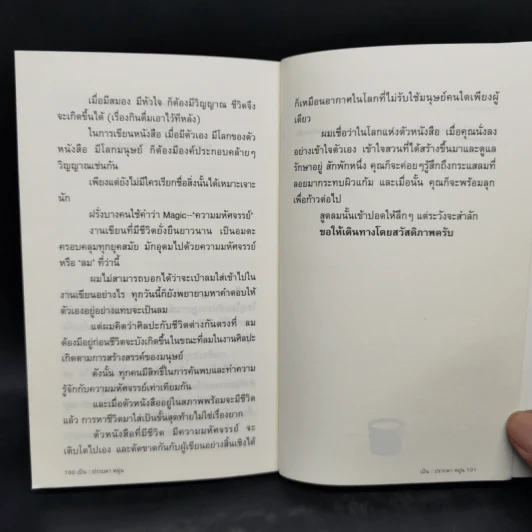 เมื่อมีสมอง มีหัวใจ ก็ต้องมีวิญญาณ ชีวิตจึง
จะเกิดขึ้นได้ (เรื่องกินดื่มเอาไว้ทีหลัง)
ในการเขียนหนังสือ เมื่อมีตัวเอง มีโลกของตัว
หนังสือ มีโลกมนุษย์ ก็ต้องมีองค์ประกอบคล้ายๆ
วิญญาณเช่นกัน
เพียงแต่ยังไม่มีใครเรียกชื่อสิ่งนั้นได้เหมาะเจาะ
นัก
ฝรั่งบางคนใช้คำว่า Magic--'ความมหัศจรรย์'
งานเขียนที่มีชีวิตยั่งยืนยาวนาน เป็นอมตะ
ครอบคลุมทุกยุคสมัย มักอุดมไปด้วยความมหัศจรรย์
หรือ 'ลม' ที่ว่านี้
ผมไม่สามารถบอกได้ว่าจะเป่าลมใส่เข้าไปใน
งานเขียนอย่างไร ทุกวันนี้ก็ยังพยายามหาคำตอบให้
ตัวเองอยู่อย่างแทบจะเป็นลม
แต่ผมคิดว่าศิลปะกับชีวิตต่างกันตรงที่ ลม
ต้องมีอยู่ก่อนชีวิตจะบังเกิดขึ้นในขณะที่ลมในงานศิลปะ
เกิดตามการสร้างสรรค์ของมนุษย์
ดังนั้น ทุกคนมีสิทธิ์ในการค้นพบและทำความ
รู้จักกับความมหัศจรรย์เท่าเทียมกัน
และเมื่อตัวหนังสืออยู่ในสภาพพร้อมจะมีชีวิต
แล้ว การหาชีวิตมาใส่เป็นขั้นสุดท้ายไม่ใช่เรื่องยาก
ตัวหนังสือที่มีชีวิต มีความมหัศจรรย์ จะ
เติบโตไปเอง และตัดขาดกันกับผู้เขียนอย่างสิ้นเชิงได้
100 เป็น : ปราบดา หยุ่น
ก็เหมือนอากาศในโลกที่ไม่รับใช้มนุษย์คนใดเพียงผู้
เดียว
ผมเชื่อว่าในโลกแห่งตัวหนังสือ เมื่อคุณนั่งลง
อย่างเข้าใจตัวเอง เข้าใจสวนที่ได้สร้างขึ้นมาและดูแล
รักษาอยู่ สักพักหนึ่ง คุณก็จะค่อยๆรู้สึกถึงกระแสลมที่
ลอยมากระทบผิวแก้ม และเมื่อนั้น คุณก็จะพร้อมลุก
เพื่อก้าวต่อไป
สูดลมนั้นเข้าปอดให้ลึกๆ แต่ระวังจะสำลัก
ขอให้เดินทางโดยสวัสดิภาพครับ
เป็น : ปราบดา หยุ่น 101